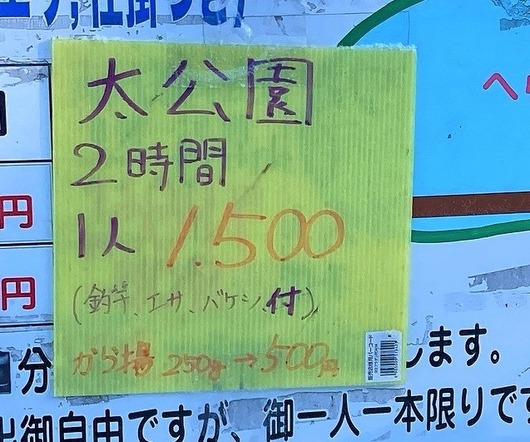 エサ,仕掛つき/
太公園
2時間
1人 1.500
(釣竿、エサ、バケツ、付)
から揚 250g→500円
円
円
へ
分
します。
出御自由ですが、御一人一本限りです